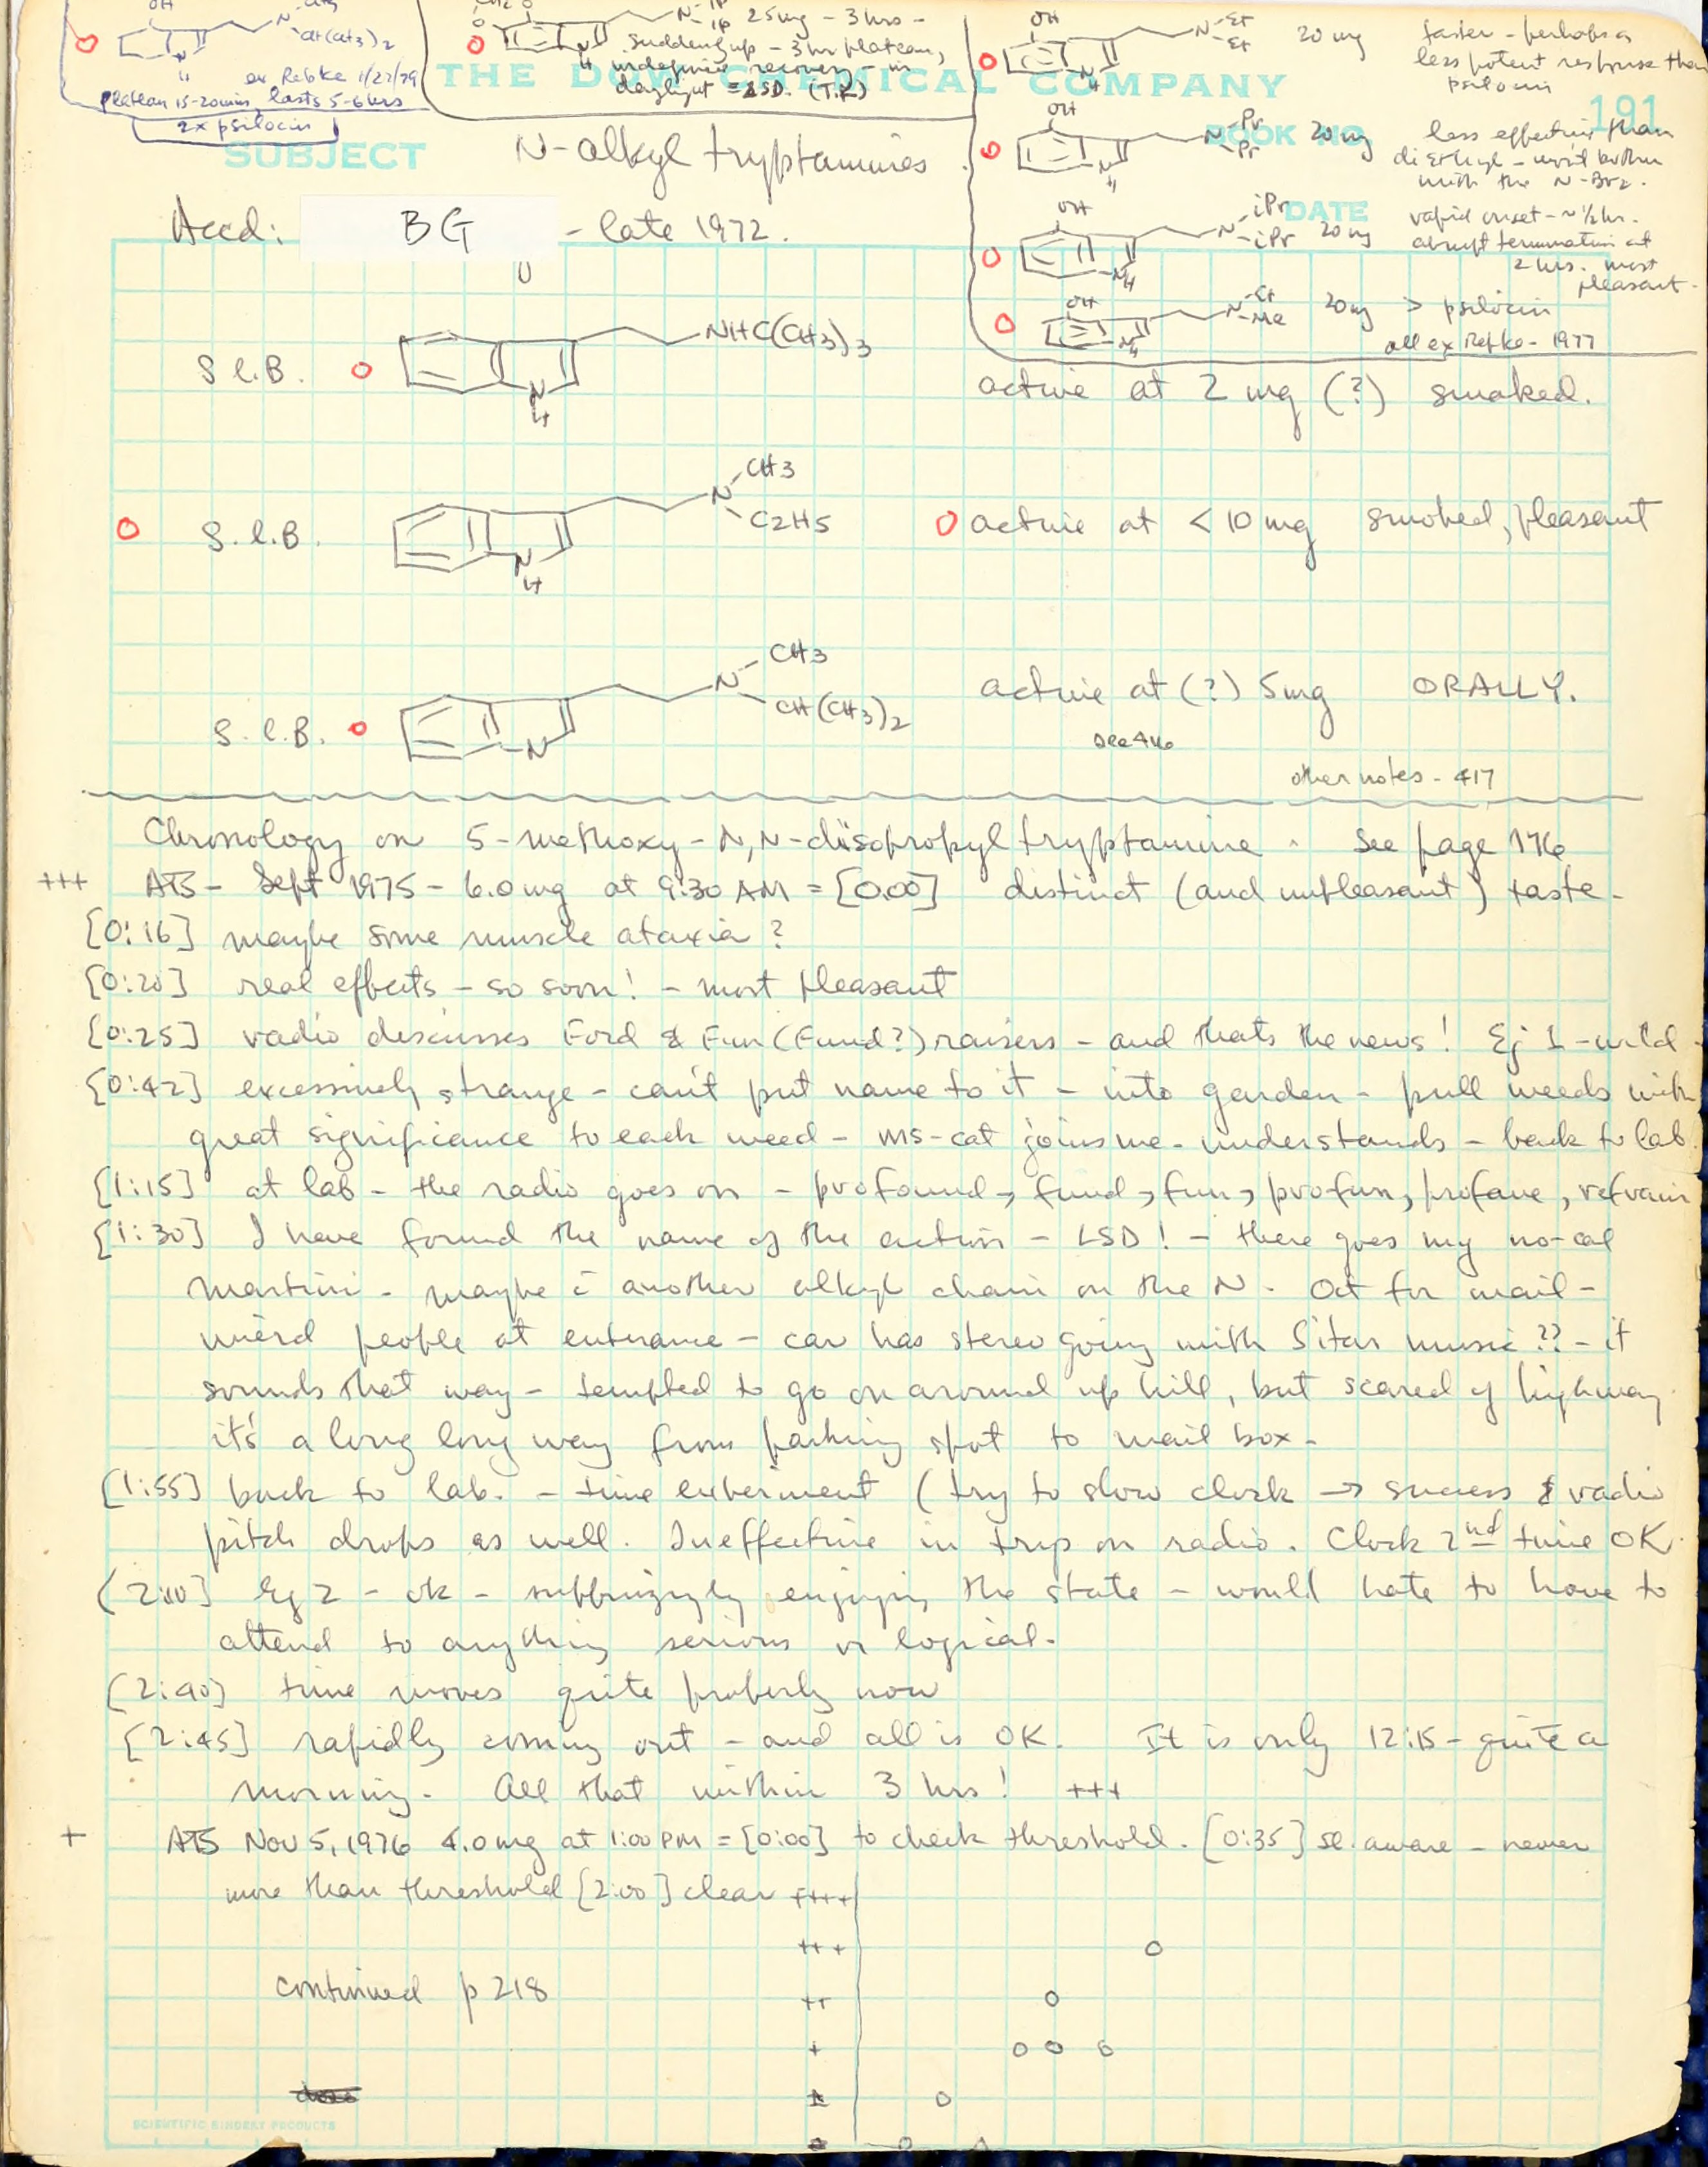 OH
N
CH3
CH(CH3)2
N
H
ex Repke 1/27/79
plateau 15-20 min, lasts 5-6 hrs
2x psilocin
N
iP
iP
25mg - 3 hrs -
suddenly up - 3 hr plateau,
undefined recovery - in
daylight = LSD. (T.R)
OH
N
Et
Et
N
H
20 mg
faster - perhaps a
less potent response than
psilocin
THE DOW CHEMICAL COMPANY
191
SUBJECT
N-alkyl tryptamines
BOOK NO.
OH
N
Pr
Pr
N
H
20 mg
less effective than
diethyl - won't bother
with the N-Bu2.
DATE
OH
N
iPr
iPr
NH
20 mg
rapid onset - ~ 1/2 hr.
abrupt termination at
2 hrs. most
pleasant -
OH
N
Et
Me
N
H
20 mg > psilocin
all ex Repke - 1977
Accd: BG - late 1972.
S l.B. NHC(CH3)3
N
H
active at 2 mg (?) smoked.
S.l.B. N
CH3
C2H5
N
H
active at < 10 mg smoked, pleasant
S.l.B. N
CH3
CH(CH3)2
N
active at (?) 5mg ORALLY.
see 416
other notes - 417
Chronology on 5-methoxy-N,N-diisopropyl tryptamine. See page 176
+++ ATS - Sept 1975 - 6.0 mg at 9:30 AM = [0:00] distinct (and unpleasant) taste -
[0:16] maybe some muscle ataxia?
[0:20] real effects - so soon! - most pleasant
[0:25] radio discusses Ford & Fun (Fund?) raisers - and thats the news! Ej 1 - wild -
[0:42] excessively strange - can't put name to it - into garden - pull weeds with
great significance to each weed - ms-cat joins me - understands - back to lab.
[1:15] at lab - the radio goes on - profound, fund, fun, profun, profane, refrain
[1:30] I have found the name of the action - LSD! - there goes my no-cal
martini - maybe c̄ another alkyl chain on the N. Out for mail -
wierd people at entrance - car has stereo going with Sitar music?? - it
sounds that way - tempted to go on around up hill, but scared of highway.
it's a long long way from parking spot to mail box -
[1:55] back to lab. - time experiment (try to slow clock → success & radio
pitch drops as well. Ineffective in trip on radio. Clock 2nd time OK.
(2:10] Ej 2 - ok - suprizingly enjoying the state - would hate to have to
attend to anything serious or logical.
(2:40) time moves quite properly now
[2:45] rapidly coming out - and all is OK. It is only 12:15 - quite a
morning. All that within 3 hrs! +++
+ ATS Nov 5, 1976 4.0 mg at 1:00 PM = [0:00] to check threshold. [0:35] sl. aware - never
more than threshold [2:00] clear ++++
+++
continued p 218
++
+
±
SCIENTIFIC BINDERY PRODUCTS